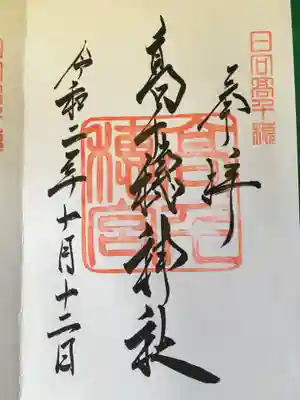 日向高千穂
奉拝
高千穂神社
高千穂宮
令和二年十月十二日